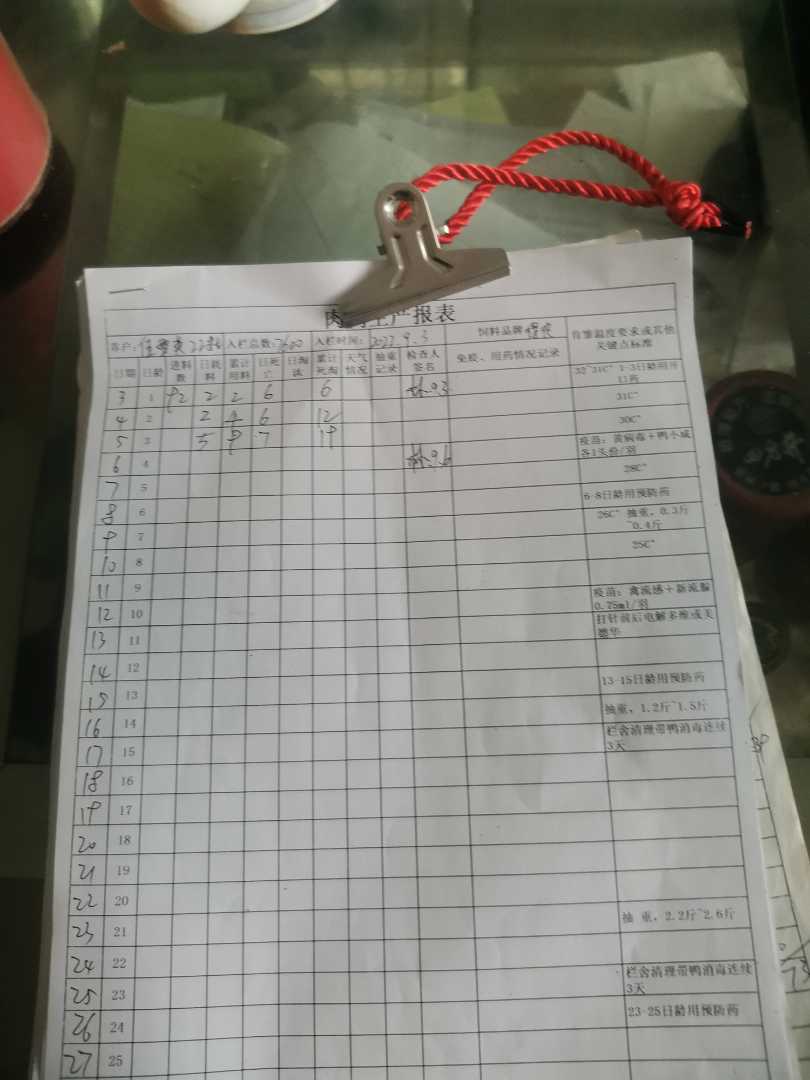 产报表
客户: 22批 入栏总数:7600 入栏时间: 2022.9.3 饲料品牌 育雏温度要求或其他关键点标准
日期 日龄 进料数 日耗料 累计用料 日死亡 日淘汰 累计死淘 天气情况 抽重记录 检查人签名 免疫、用药情况记录
3 1 92 2 2 6 6 9.3 32~31C° 1-3日龄用开口药
4 2 2 4 6 12 31C°
5 3 5 9 7 19 30C°
6 4 9.6 疫苗: 黄病毒+鸭小威各1头份/羽
7 5 28C°
8 6 6-8日龄用预防药
9 7 26C° 抽重, 0.3斤~0.4斤
10 8 25C°
11 9
12 10 疫苗: 禽流感+新流腺0.75ml/羽
13 11 打针前后电解多维或美德华
14 12
15 13 13-15日龄用预防药
16 14 抽重, 1.2斤~1.5斤
17 15 栏舍清理带鸭消毒连续3天
18 16
19 17
20 18
21 19
22 20
23 21 抽 重, 2.2斤~2.6斤
24 22
25 23 栏舍清理带鸭消毒连续3天
26 24 23-25日龄用预防药
27 25